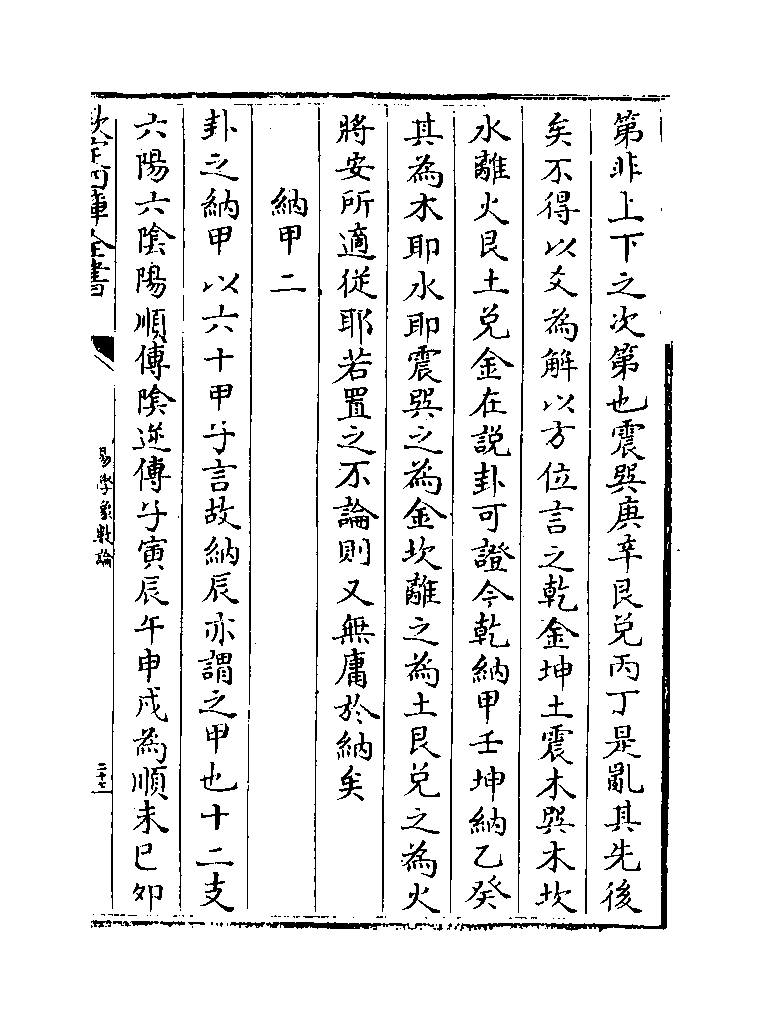 第非上下之次第也震巽庚辛艮兑丙丁是亂其先後
矣不得以爻為解以方位言之乾金坤土震木巽木坎
水離火艮土兑金在説卦可證今乾納甲壬坤納乙癸
其為木耶水耶震巽之為金坎離之為土艮兑之為火
將安所適從耶若置之不論則又無庸於納矣
納甲二
卦之納甲以六十甲子言故納辰亦謂之甲也十二支
六陽六隂陽順傳隂逆傳子寅辰午申戌為順未巳夘
欽定四庫全書
易學象數論
二十七